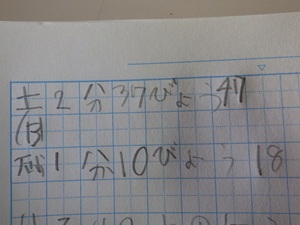 土2分37びょう47
(日)
1分10びょう18